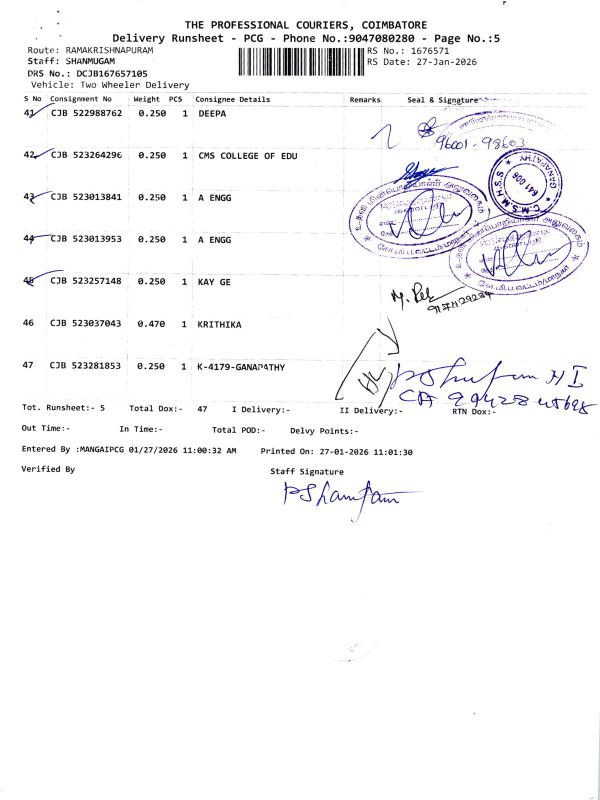 THE PROFESSIONAL COURIERS, COIMBATORE
Delivery Runsheet - PCG - Phone No.:9047080280 - Page No.:5
Route: RAMAKRISHNAPURAM RS No.: 1676571
Staff: SHANMUGAM RS Date: 27-Jan-2026
DRS No.: DCJB167657105
Vehicle: Two Wheeler Delivery
S No Consignment No Weight PCS Consignee Details Remarks Seal & Signature
41 CJB 522988762 0.250 1 DEEPA
96001-98603
42 CJB 523264296 0.250 1 CMS COLLEGE OF EDU
C.M.S.M.H.S.S GANAPATHY 641 006
43 CJB 523013841 0.250 1 A ENGG
44 CJB 523013953 0.250 1 A ENGG
45 CJB 523257148 0.250 1 KAY GE
46 CJB 523037043 0.470 1 KRITHIKA
47 CJB 523281853 0.250 1 K-4179-GANAPATHY
Tot. Runsheet:- 5 Total Dox:- 47 I Delivery:- II Delivery:- RTN Dox:-
Out Time:- In Time:- Total POD:- Delvy Points:-
Entered By :MANGAIPCG 01/27/2026 11:00:32 AM Printed On: 27-01-2026 11:01:30
Verified By Staff Signature